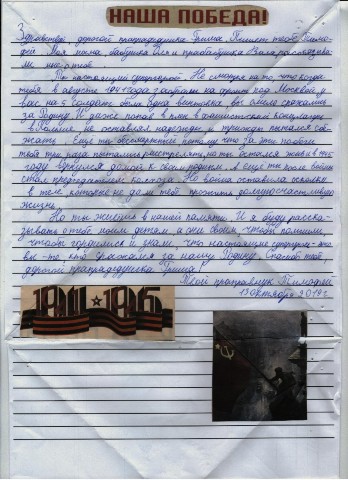 НАША ПОБЕДА!
Здравствуй дорогой прапрадедушка Гриша. Пишет тебе Тимо-
фей. Моя мама, бабушка Оля и прабабушка Валя рассказыва-
ли мне о тебе.
Ты настоящий супергерой. Не смотря на то, что когда
тебя в августе 1941 года забрали на фронт под Москвой, у
вас на 5 солдат была одна винтовка, вы смело сражались
за Родину. И даже попав в плен в фашистский концлагерь
в Польше, не оставлял надежды и трижды пытался сбе-
жать. Ещё ты бессмертный потому что за эти побеги
тебя три раза пытались расстрелять, но ты остался жив и в 1945
году вернулся домой к своим родным. А ещё ты после войны
стал председателем колхоза. Но война оставила осколки
в теле, которые не дали тебе прожить долгую счастливую
жизнь.
Но ты живёшь в нашей памяти. И я буду расска-
зывать о тебе моим детям, а они своим чтобы помнили,
чтобы гордились и знали, что настоящие супергерои - это
вы - те, кто сражался за нашу Родину. Спасибо тебе,
дорогой прапрадедушка Гриша!
Твой праправнук Тимофей
13 октября 2019 г.
1941 1945